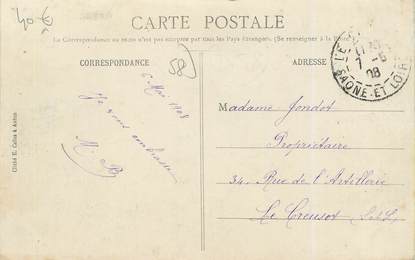 40 €
CARTE POSTALE
La Correspondance au recto n'est pas acceptée par tous les Pays étrangers. (Se renseigner à la Poste)
CORRESPONDANCE
58
ADRESSE
7 -5
08
SAONE-ET-LOIRE
6 Mai 1908
Je vous embrasse
M. B
Cliché E.
à Autun
Madame Jondot
Propriétaire
34, Rue de l'Artillerie
Le Creusot
S.&L.